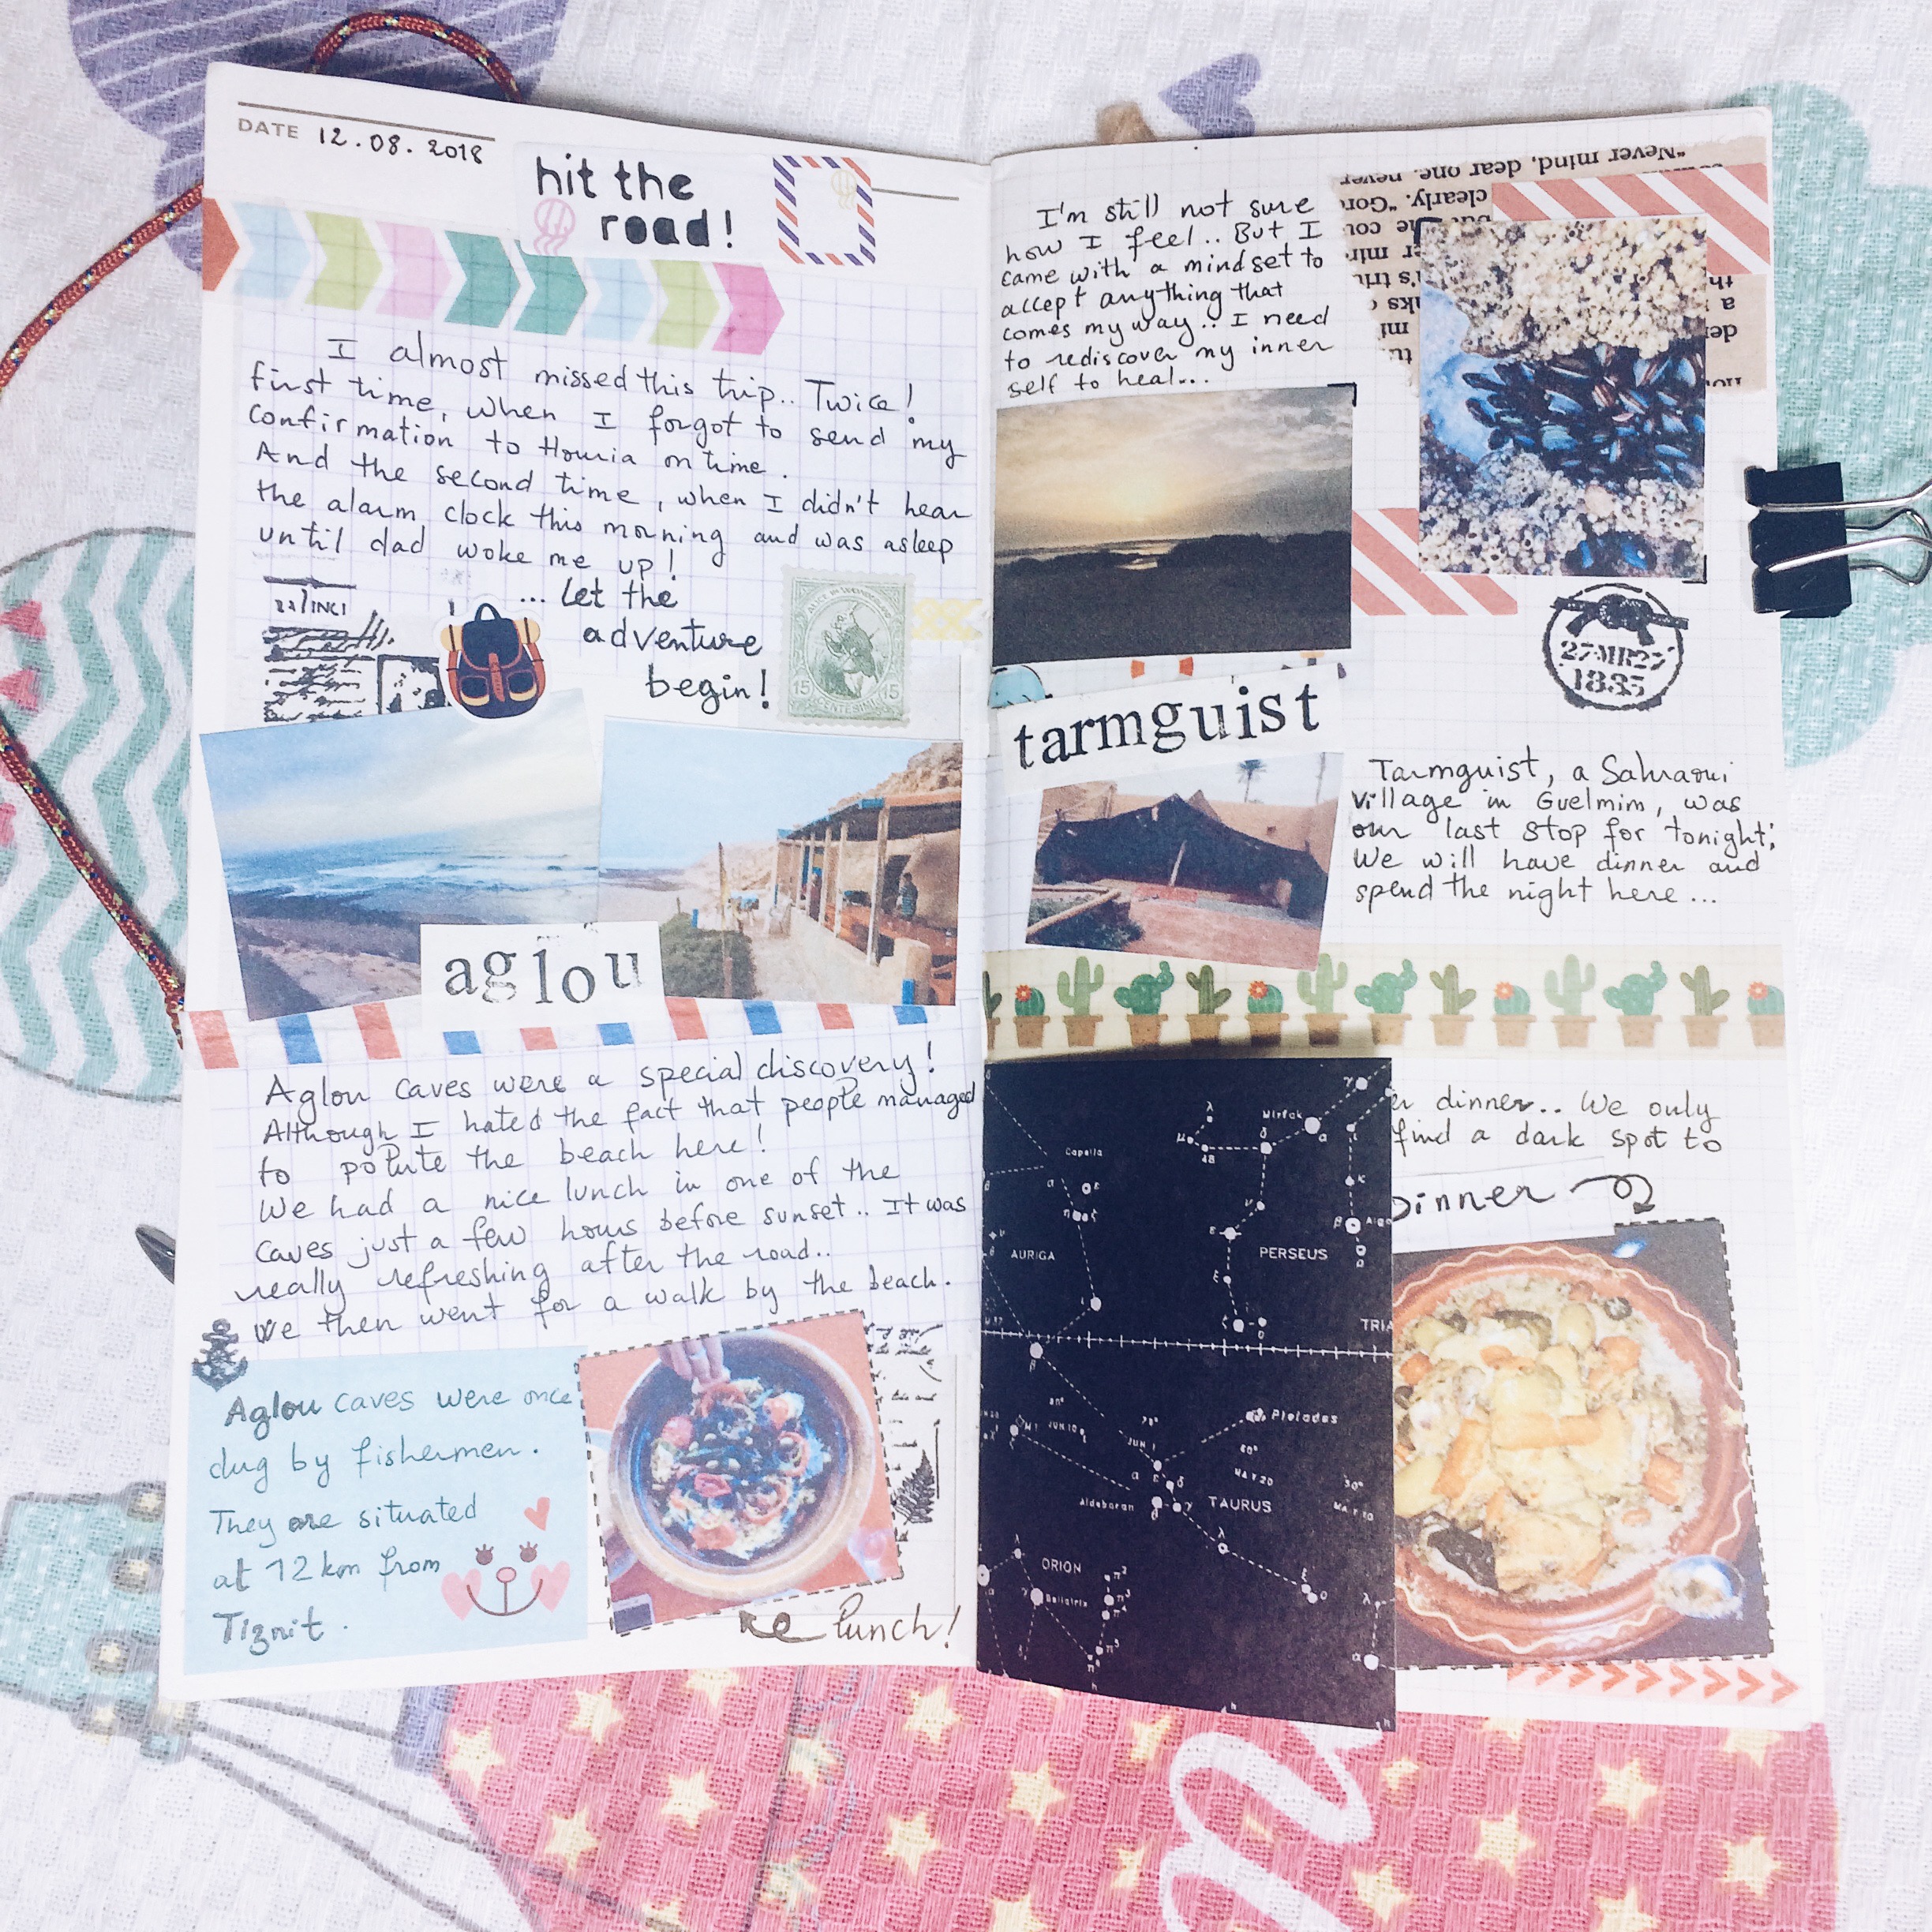 DATE 12.08.2018
hit the
road!
I almost missed this trip.. Twice!
first time, when I forgot to send my
confirmation to Houria on time.
And the second time, when I didn't hear
the alarm clock this morning and was asleep
until dad woke me up!
... Let the
adventure
begin!
15 15
CENTESIMI
aglou
Aglou caves were a special discovery!
Although I hated the fact that people managed
to polute the beach here!
We had a nice lunch in one of the
caves just a few hours before sunset.. It was
really refreshing after the road..
We then went for a walk by the beach.
Aglou caves were once
dug by fishermen.
They are situated
at 12 km from
Tiznit.
lunch!
I'm still not sure
how I feel.. But I
came with a mindset to
accept anything that
comes my way.. I need
to rediscover my inner
self to heal...
"Never mind, dear one, never
clearly. "Gor
27 MR 27
1885
tarmguist
Tarmguist, a Sahraoui
village in Guelmim, was
our last stop for tonight;
We will have dinner and
spend the night here...
dinner.. We only
find a dark spot to
Dinner
Mirfak
Capella
AURIGA
PERSEUS
TRIA
Pleiades
JUN 10
JUN 1
MAY 20
MAY 10
Aldebaran
TAURUS
ORION
Bellatrix